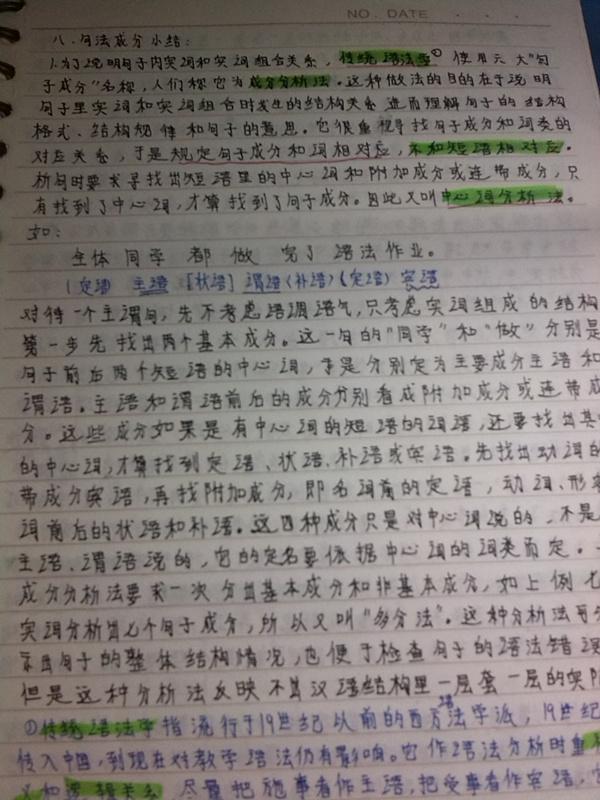 NO. DATE
八.句法成分小结:
1.为了说明句子内实词和实词组合关系,传统语法学①使用六大"句
子成分"名称,人们称它为成分分析法。这种做法的目的在于说明
句子里实词和实词组合时发生的结构关系,进而理解句子的结构
格式、结构规律和句子的意思。它很重视寻找句子成分和词类的
对应关系,于是规定句子成分和词相对应,不和短语相对应。
析句时要求寻找出短语里的中心词和附加成分或连带成分,只
有找到了中心词,才算找到了句子成分。因此又叫中心词分析法。
如:
全体同学都做完了语法作业。
(定语 主语 [状语] 谓语〈补语〉(定语) 宾语
对待一个主谓句,先不考虑语调语气,只考虑实词组成的结构
第一步先找出两个基本成分。这一句的"同学"和"做"分别是
句子前后两个短语的中心词,于是分别定为主要成分主语和
谓语。主语和谓语前后的成分分别看成附加成分或连带成
分。这些成分如果是有中心词的短语的词语,还要找出其中
的中心词,才算找到定语、状语、补语或宾语。先找出动词的
带成分宾语,再找附加成分,即名词前的定语,动词、形容
词前后的状语和补语。这四种成分只是对中心词说的,不是
主语、谓语说的,它的定名要依据中心词的词类而定。
成分分析法要求一次分出基本成分和非基本成分,如上例七
实词分析出七个句子成分,所以又叫"多分法"。这种分析法可
示出句子的整体结构情况,也便于检查句子的语法错误
但是这种分析法反映不出汉语结构里一层套一层的实际
①传统语法学指流行于19世纪以前的西方语法学派,19世纪
传入中国,到现在对教学语法仍有影响。它作语法分析时重
义和逻辑关系,尽量把施事者作主语,把受事者作宾语,